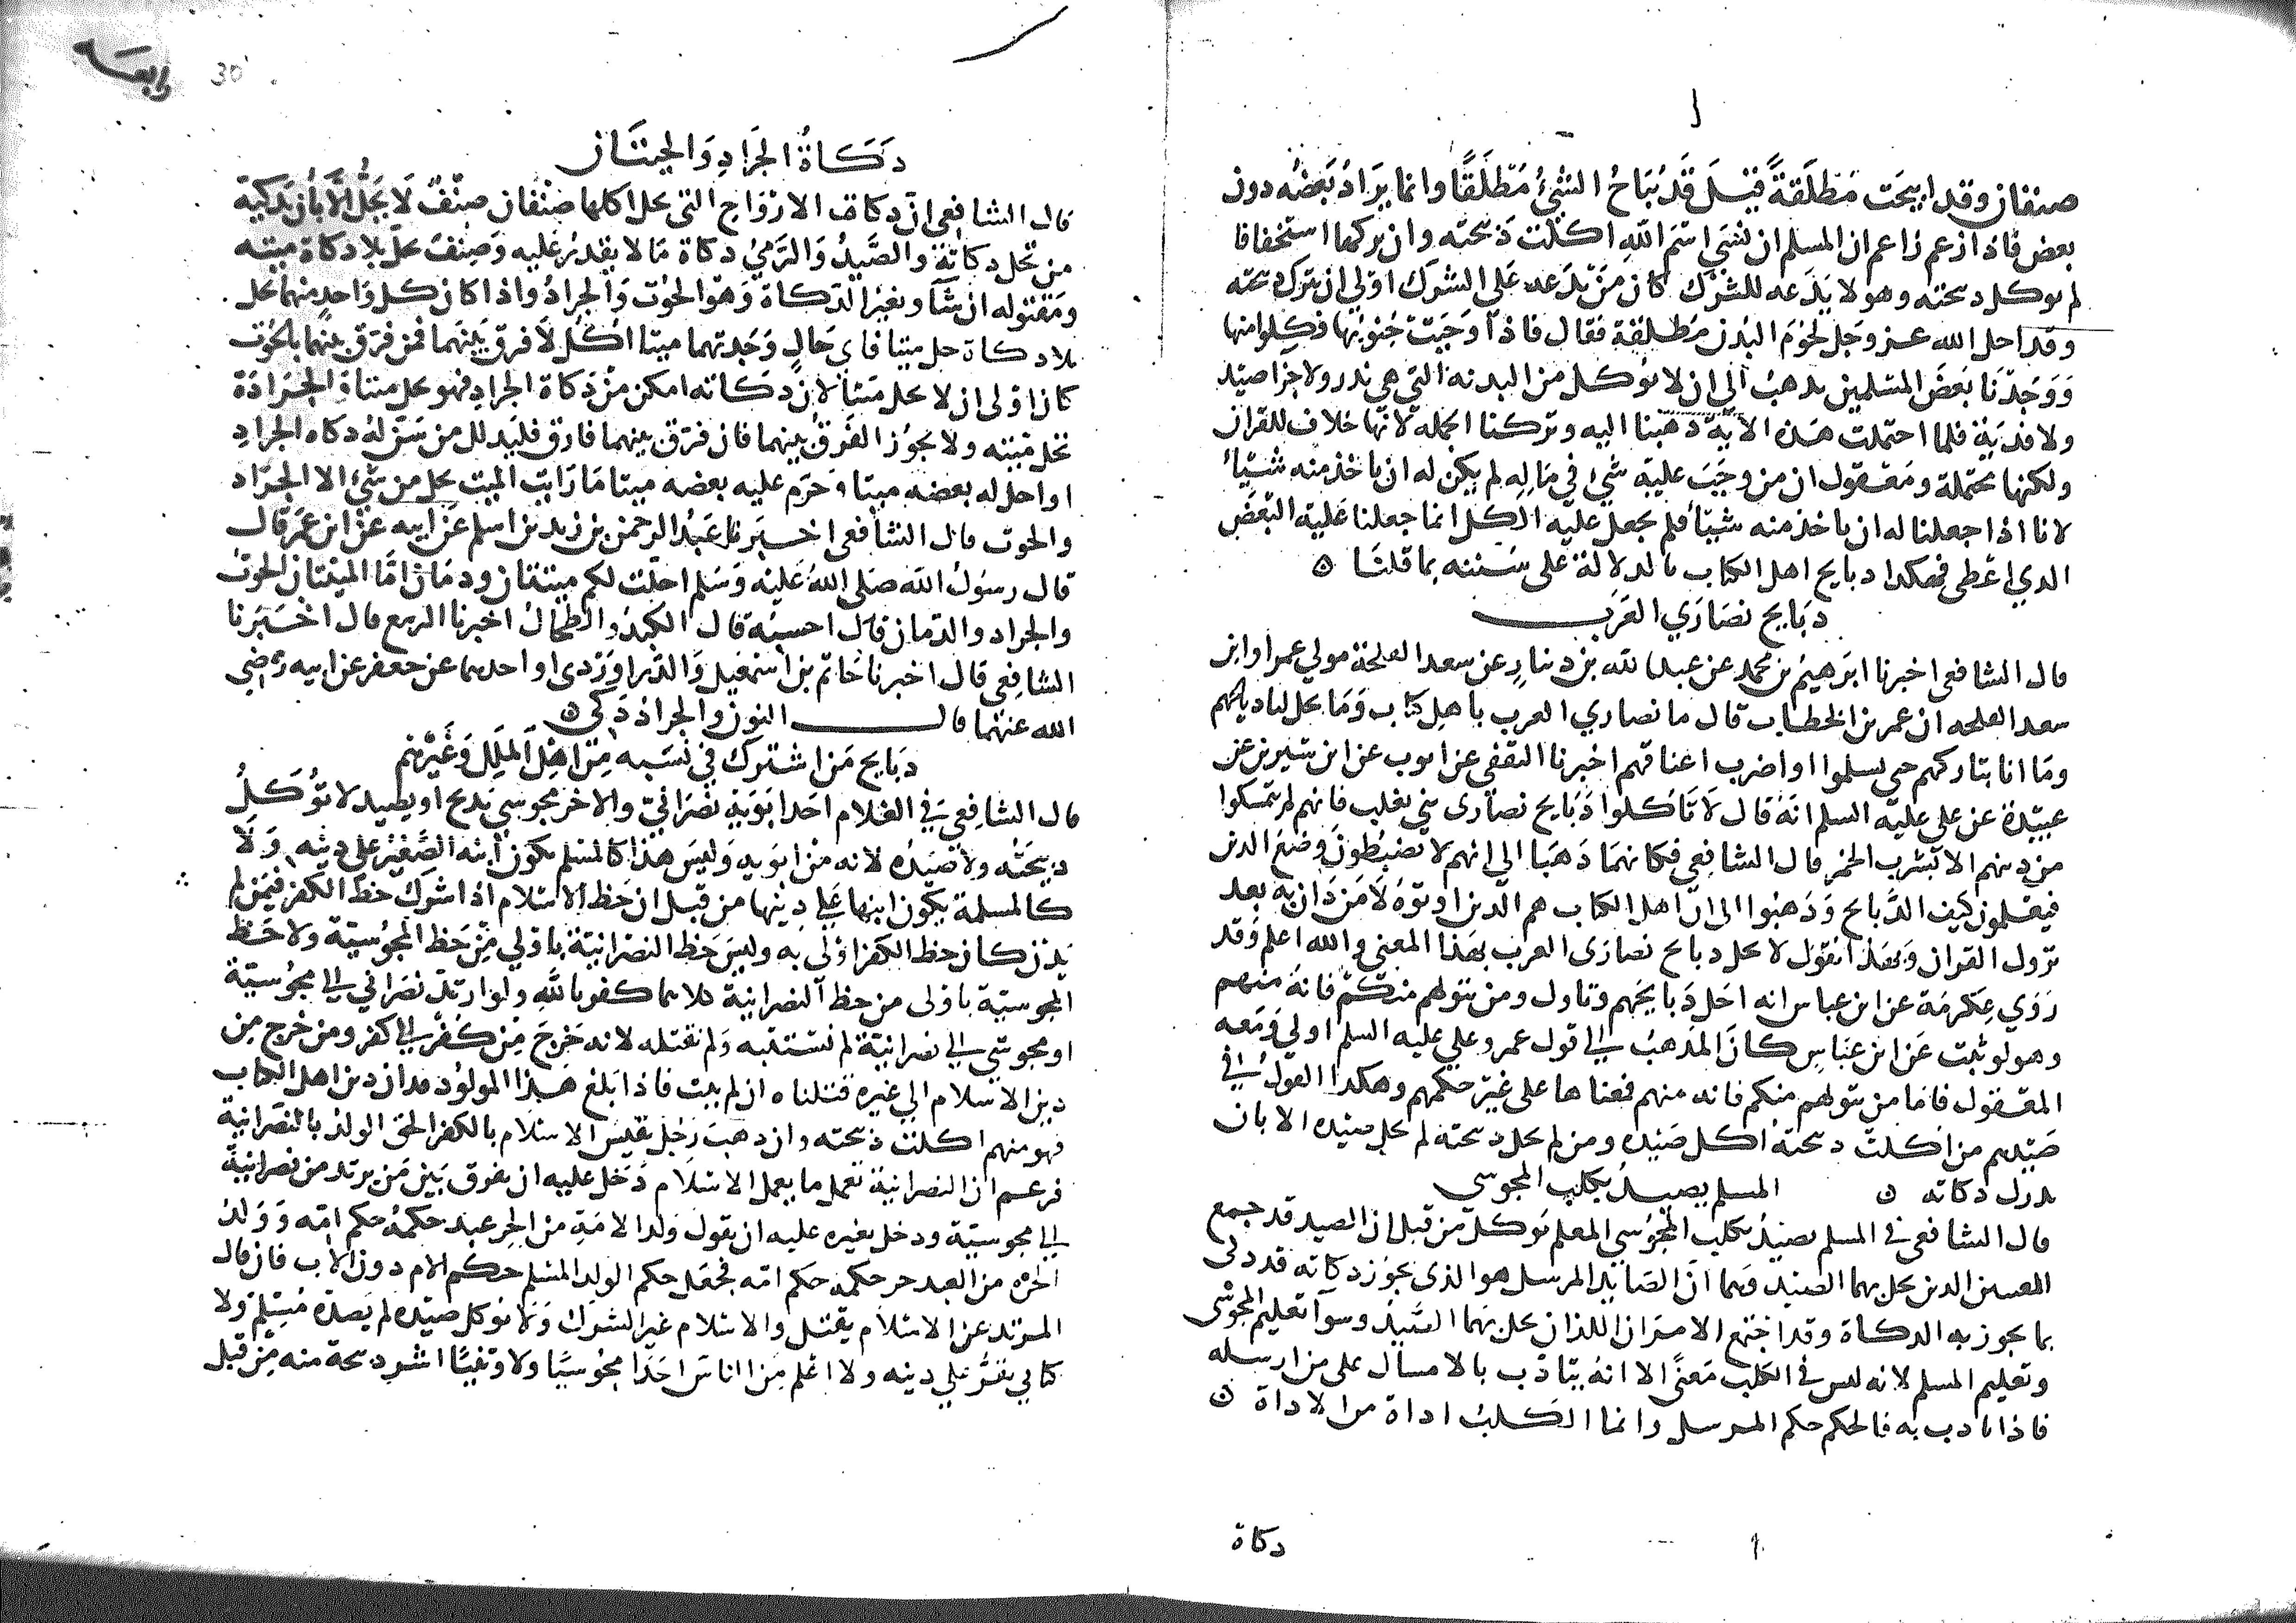 صنفان وقد ابيحت مطلقة قيل قد يباح الشيء مطلقا وانما يراد بعضه دون
بعض فاذا زعم زاعم ان المسلم ان نسي اسم الله اكلت ذبيحته وان تركها استخفافا
لم توكل ذبيحته وهو لا يدعه للشرك كان من يدعه على الشرك اولى ان تترك ذبيحته
وقد احل الله عز وجل لحوم البدن مطلقة فقال فاذا وجبت جنوبها فكلوا منها
ووجدنا بعض المسلمين يذهب الى ان لا يوكل من البدنة التي هي نذر ولا جزا صيد
ولا فدية فلما احتملت هذه الاية ذهبنا اليه وتركنا الجملة لانها خلاف للقران
ولكنها محتملة ومعقول ان من وجب عليه شي في ماله لم يكن له ان ياخذ منه شيئا
لانا اذا جعلنا له ان ياخذ منه شيئا فلم يجعل عليه الكل انما جعلنا عليه البعض
الذي اعطى فهكذا ذبايح اهل الكتاب بالدلالة على سننه بما قلنا ه
ذبايح نصاري العرب
قال الشافعي اخبرنا ابرهيم بن محمد عن عبد الله بن دينار عن سعد الفلجة مولي عمر او ابن
سعد الفلجه ان عمر بن الخطاب قال ما نصاري العرب باهل كتاب وما يحل لنا ذبايحهم
وما انا بتاركهم حتى يسلموا او اضرب اعناقهم اخبرنا الثقفي عن ايوب عن ابن سيرين عن
عبيدة عن علي عليه السلم انه قال لا تاكلوا ذبايح نصارى بني تغلب فانهم لم يتمسكوا
من دينهم الا بشرب الخمر قال الشافعي فكانهما ذهبا الى انهم لا يضبطون وضع الدين
فيعقلون كيف الذبايح وذهبوا الى ان اهل الكتاب هم الذين اوتوه لا من دان به بعد
نزول القران وبهذا نقول لا يحل ذبايح نصارى العرب بهذا المعنى والله اعلم وقد
روي عكرمة عن ابن عباس انه احل ذبايحهم وتاول ومن يتولهم منكم فانه منهم
وهو لو ثبت عن ابن عباس كان المذهب الى قول عمر وعلي عليه السلم اولي ومعه
المعقول فاما من يتولهم منكم فانه منهم فمعناها على غير حكمهم وهكذا القول في
صيدهم من اكلت ذبيحته اكل صيده ومن لم يحل ذبيحته لم يحل صيده الا بان
يدرك ذكاته ه المسلم يصيد بكلب المجوسي
قال الشافعي في المسلم يصيد بكلب المجوسي المعلم يوكل من قبل ان الصيد قد جمع
المعنيين الذين يحل بهما الصيد وهما ان الصايد المرسل هو الذي يجوز ذكاته قد ذكى
بما يجوز به الذكاة وقد اجتمع الامران اللذان يحل بهما الصيد وسوا تعليم المجوسي
وتعليم المسلم لانه ليس في الكلب معنى الا انه يتادب بالامساك على من ارسله
فاذا تادب به فالحكم حكم المرسل وانما الكلب اداة من الاداة ه
ذكاة
رابعه 30
ذكاة الجراد والحيتان
قال الشافعي ان ذكاة الارواح التي يحل اكلها صنفان صنف لا يحل الا بان يذكيه
من تحل ذكاته والصيد والرمي ذكاة ما لا يقدر عليه وصنف يحل بلا ذكاة ميته
ومقتوله ان شا وبغير الذكاة وهو الحوت والجراد واذا كان كل واحد منهما يحل
بلا ذكاة حل ميتا فاي حال وجدتهما ميتا اكل لا فرق بينهما فمن فرق بينهما بالحوت
كان اولى ان لا يحل ميتا لان ذكاته امكن من ذكاة الجراد فهو يحل ميتا والجرادة
تحل ميتة ولا يجوز الفرق بينهما فان فرق بينهما فارق فليدلل من سن له ذكاه الجراد
او احل له بعضه ميتا وحرم عليه بعضه ميتا ما رايت الميت يحل من شي الا الجراد
والحوت قال الشافعي اخبرنا عبد الرحمن بن زيد بن اسلم عن ابيه عن ابن عمر قال
قال رسول الله صلى الله عليه وسلم احلت لكم ميتتان ودمان اما الميتتان الحوت
والجراد والدمان قال احسبه قال الكبد والطحال اخبرنا الربيع قال اخبرنا
الشافعي قال اخبرنا حاتم بن اسمعيل والدراوردي او احدهما عن جعفر عن ابيه رضي
الله عنهما قال النون والجراد ذكي ه
ذبايح من اشترك في نسبه من اهل الملل وغيرهم
قال الشافعي في الغلام احد ابويه نصراني والاخر مجوسي يذبح او يصيد لا توكل
ذبيحته ولا صيده لانه من ابويه وليس هذا كالمسلم يكون ابنه الصغير على دينه ولا
كالمسلمة يكون ابنها علي دينها من قبل ان حظ الاسلام اذا شرك حظ الكفر فيمن لم
يدن كان حظ الكفر اولى به وليس حظ النصرانية باولي من حظ المجوسية ولا حظ
المجوسية باولى من حظ النصرانية كلاهما كفر بالله ولو ارتد نصراني الي مجوسية
او مجوسي الي نصرانية لم نستتبه ولم نقتله لانه خرج من كفر الي كفر ومن خرج من
دين الاسلام الي غيره قتلناه ان لم يتب فاذا بلغ هذا المولود فدان دين اهل الكتاب
فهو منهم اكلت ذبيحته وان ذهب رجل يقيس الاسلام بالكفر الحق الولد بالنصرانية
فزعم ان النصرانية تعمل ما يعمل الاسلام دخل عليه ان يفرق بين من يرتد من نصرانية
الي مجوسية ودخل بغيره عليه ان يقول ولد الامة من الحر عبد حكمه حكم امه وولد
الحرة من العبد حر حكمه حكم امه فجعل حكم الولد المسلم حكم الام دون الاب فان قال
المرتد عن الاسلام يقتل والاسلام غير الشرك ولا نوكل صيده لم يصده مسلم ولا
كتابي يقر علي دينه ولا اعلم من الناس احدا مجوسيا ولا وثنيا اشر ذبيحة منه من قبل